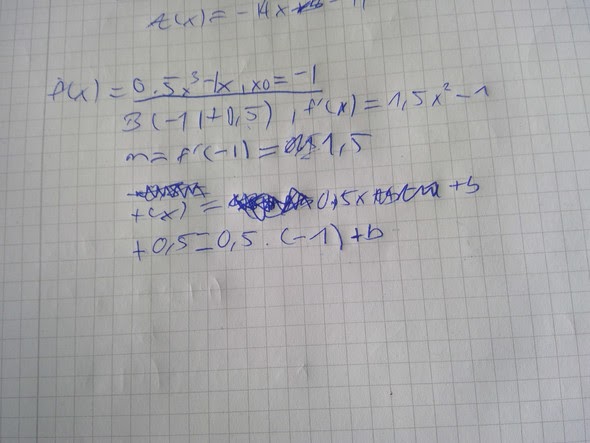 t(x) = -14x
f(x) = 0.5x³-1x, x0 = -1
B(-1|+0,5), f'(x) = 1,5x² - 1
m = f'(-1) = 1,5
t(x) = 0,5x +b
+0,5=0,5·(-1)+b